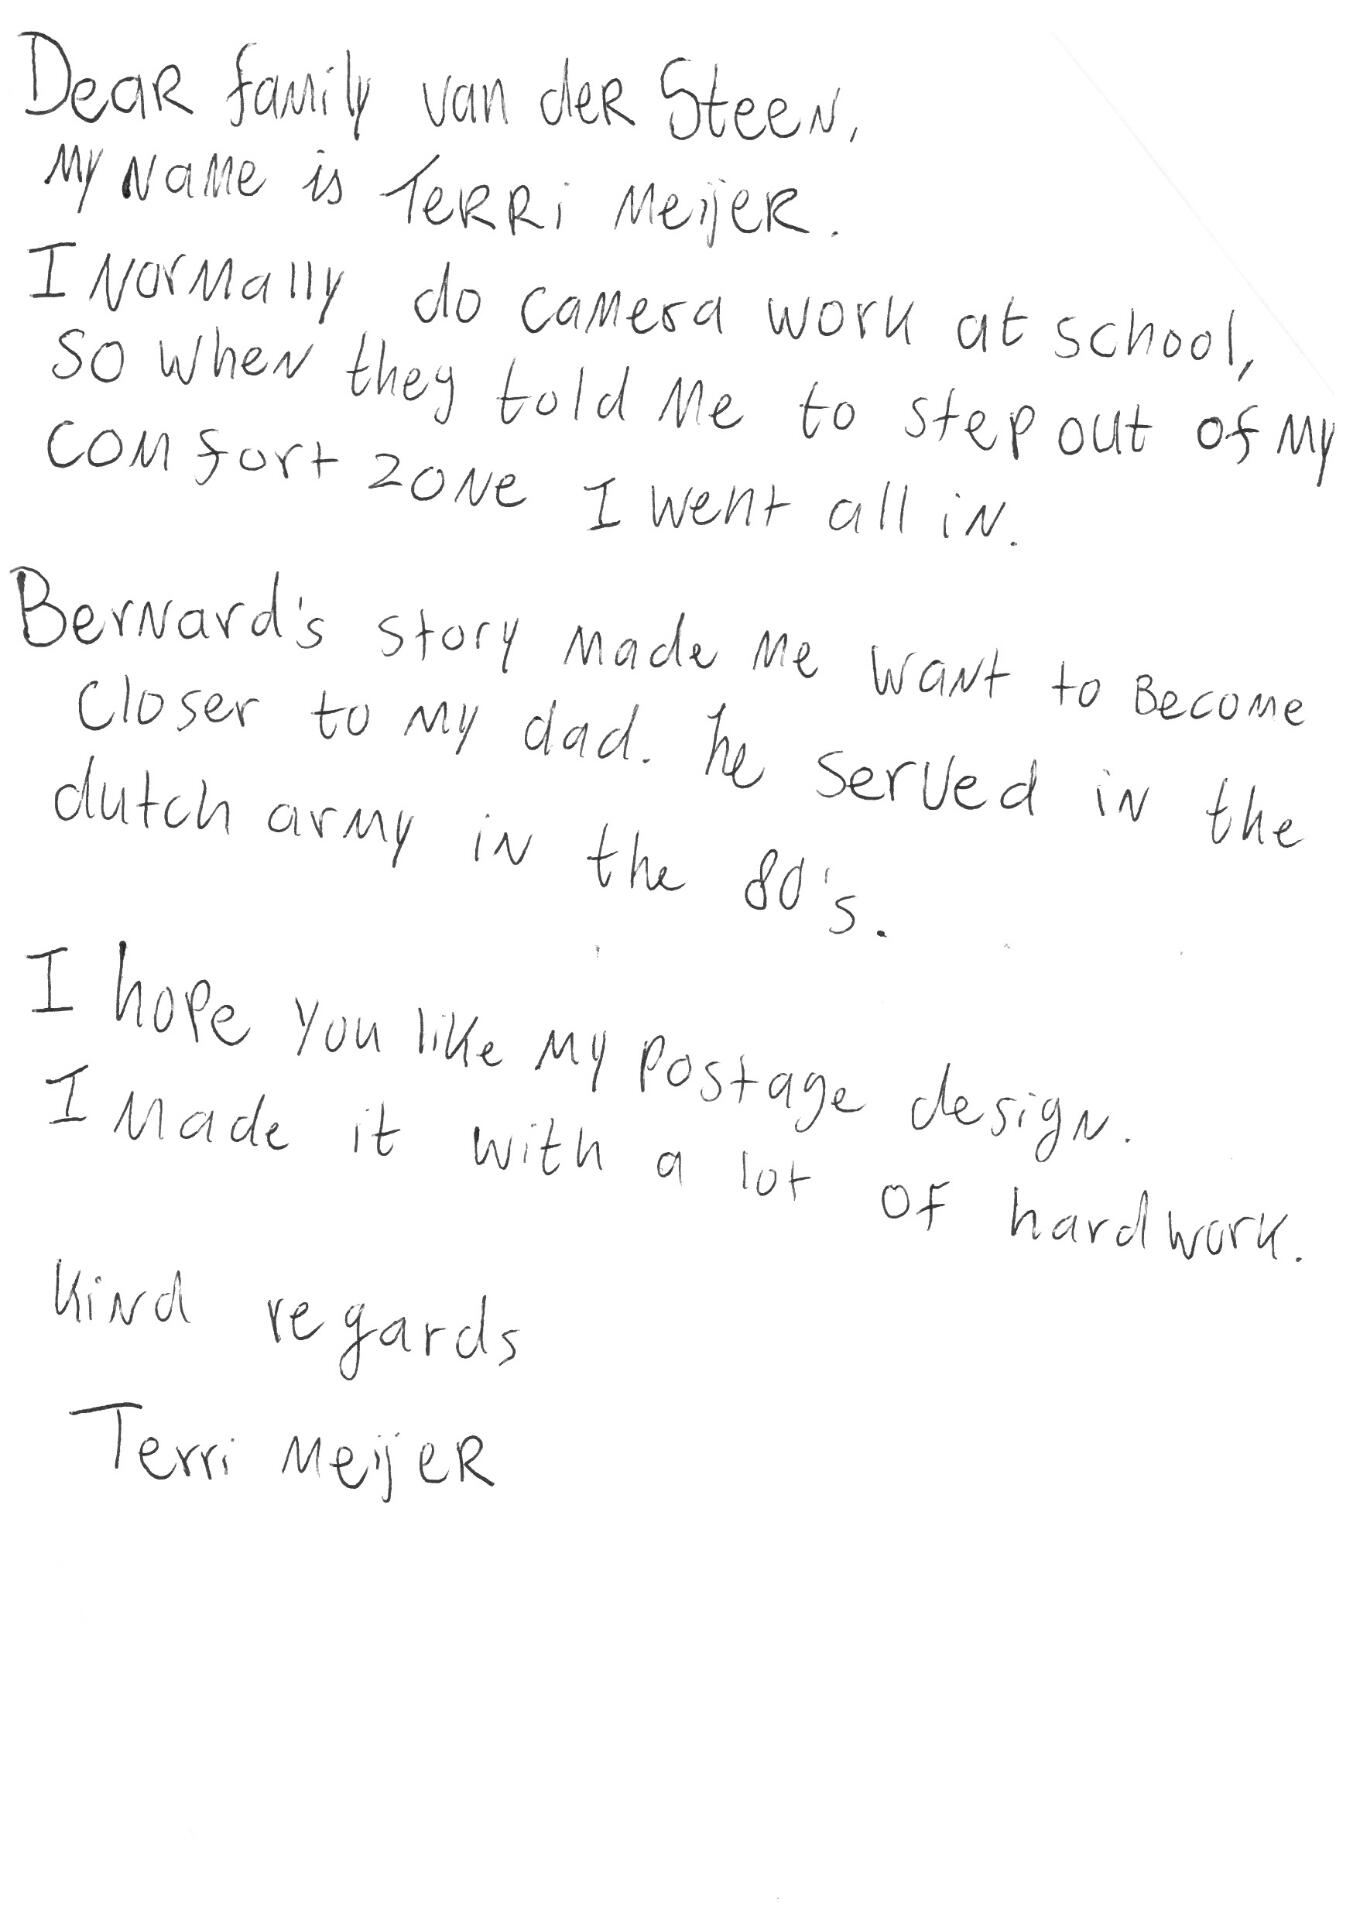 Dear family van der Steen,
My name is Terri Meijer.
I normally do camera work at school,
so when they told me to step out of my
comfort zone I went all in.
Bernard's story made me want to become
closer to my dad. he served in the
dutch army in the 80's.
I hope you like my postage design.
I made it with a lot of hardwork.
Kind regards
Terri Meijer